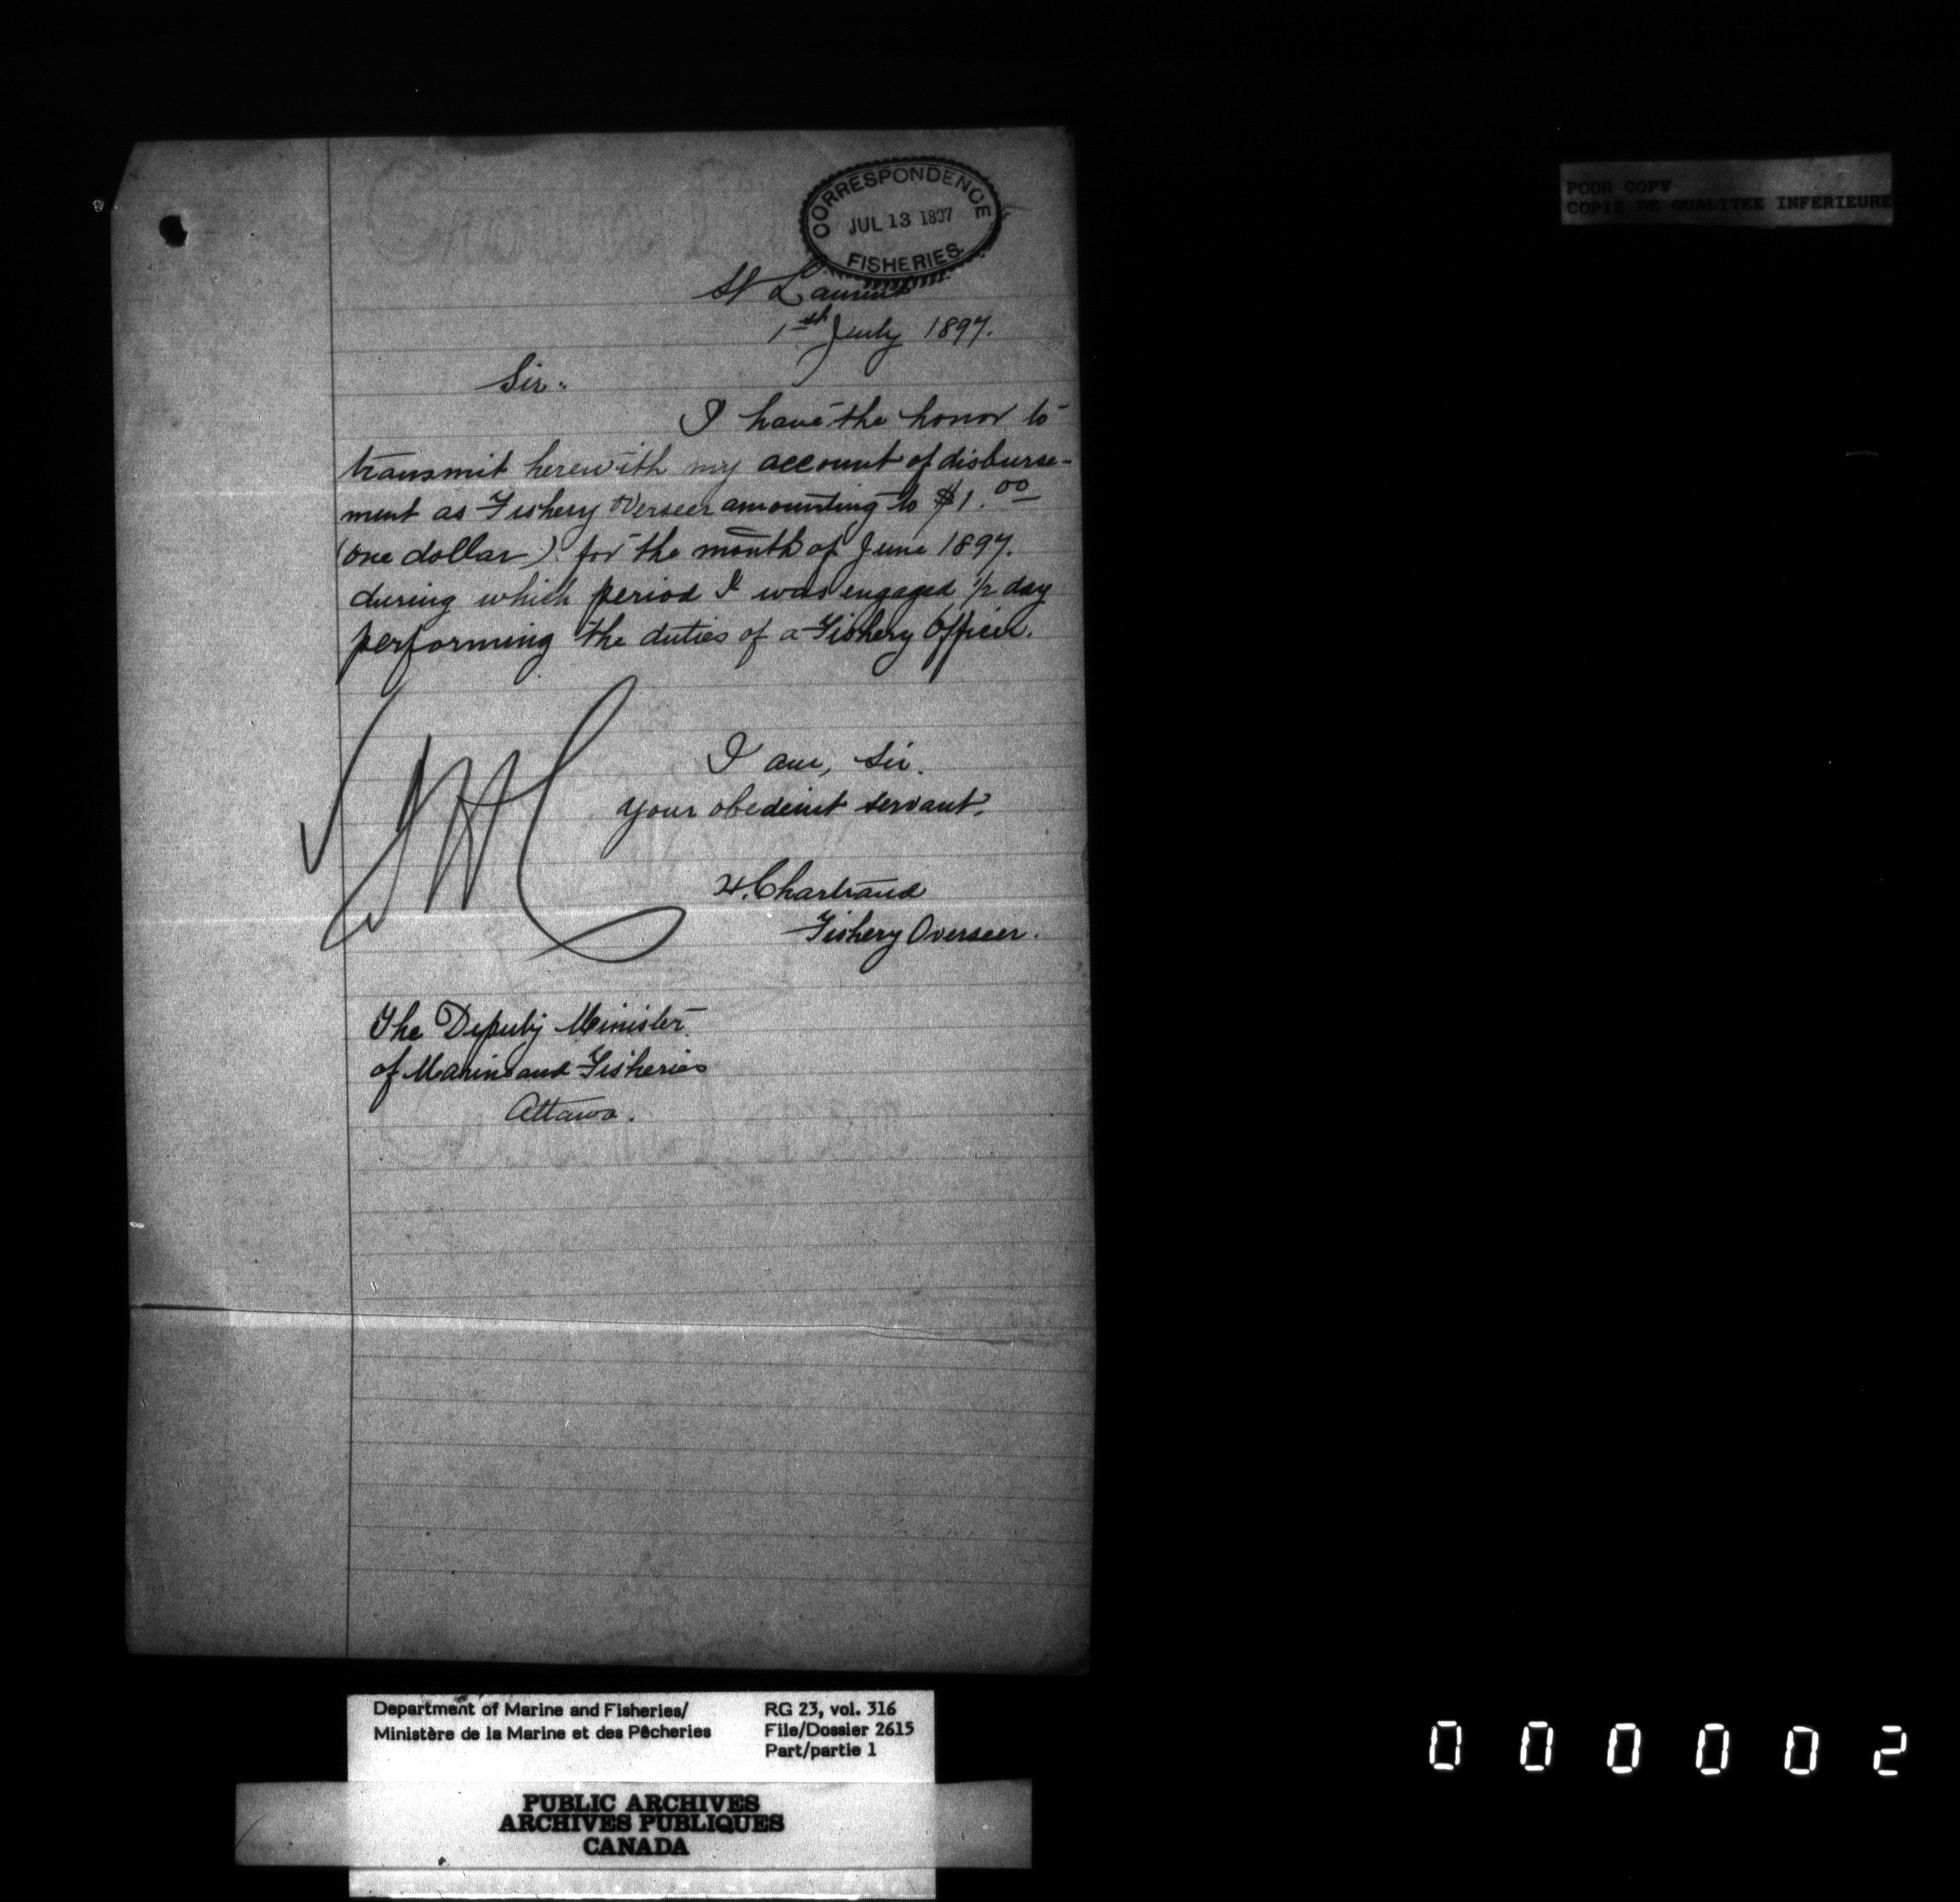 CORRESPONDENCE
JUL 13 1897
FISHERIES.
St Laurent
1st July 1897.
Sir.
I have the honor to
transmit herewith my account of disburse-
ment as Fishery Overseer amounting to $1.00
(one dollar) for the month of June 1897.
during which period I was engaged 1/2 day
performing the duties of a Fishery Officer.
I am, Sir.
your obedient servant,
H. Chartrand
Fishery Overseer.
The Deputy Minister
of Marine and Fisheries
Ottawa.
POOR COPY
COPIE DE QUALITEE INFERIEURE
Department of Marine and Fisheries/
Ministère de la Marine et des Pêcheries
RG 23, vol. 316
File/Dossier 2615
Part/partie 1
PUBLIC ARCHIVES
ARCHIVES PUBLIQUES
CANADA
000002